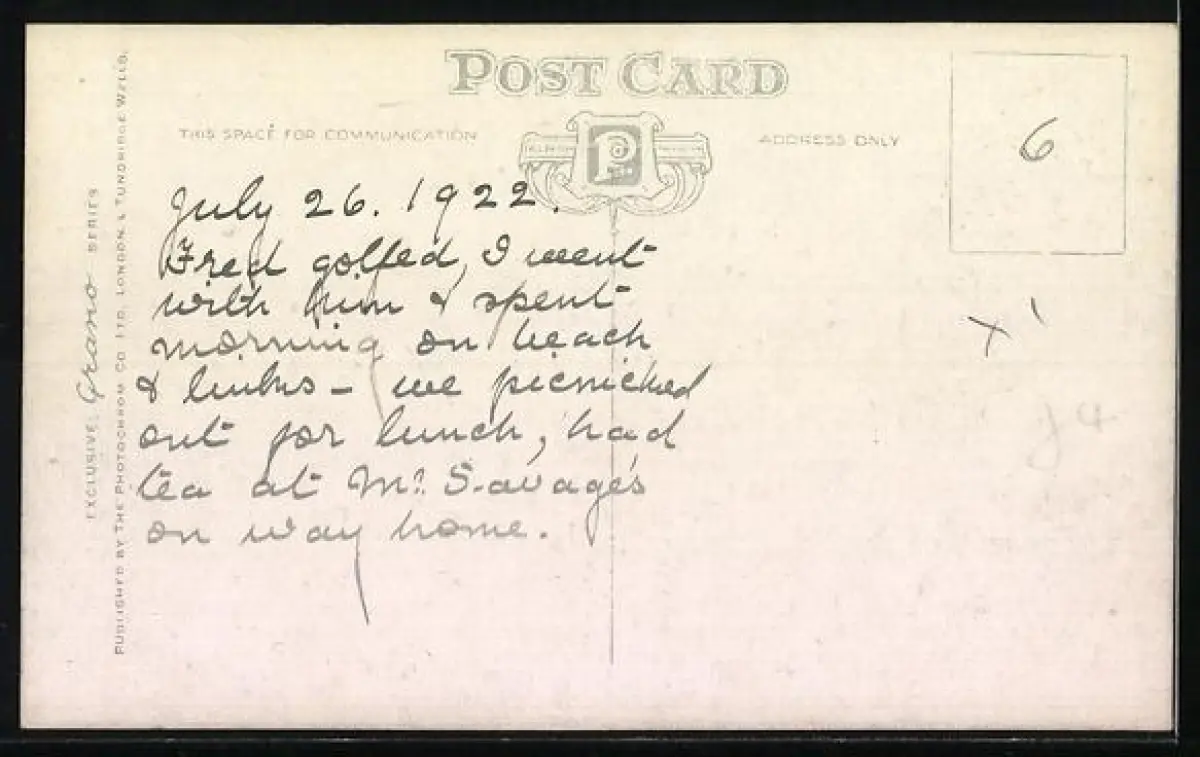 POST CARD
THIS SPACE FOR COMMUNICATION
ADDRESS ONLY
6
July 26. 1922.
Fred golfed, I went
with him & spent
morning on beach
& links - we picnicked
out for lunch, had
tea at Mr. Savage's
on way home.
X'
J 4
EXCLUSIVE Grano SERIES
PUBLISHED BY THE PHOTOCHROM CO LTD. LONDON & TUNBRIDGE WELLS.